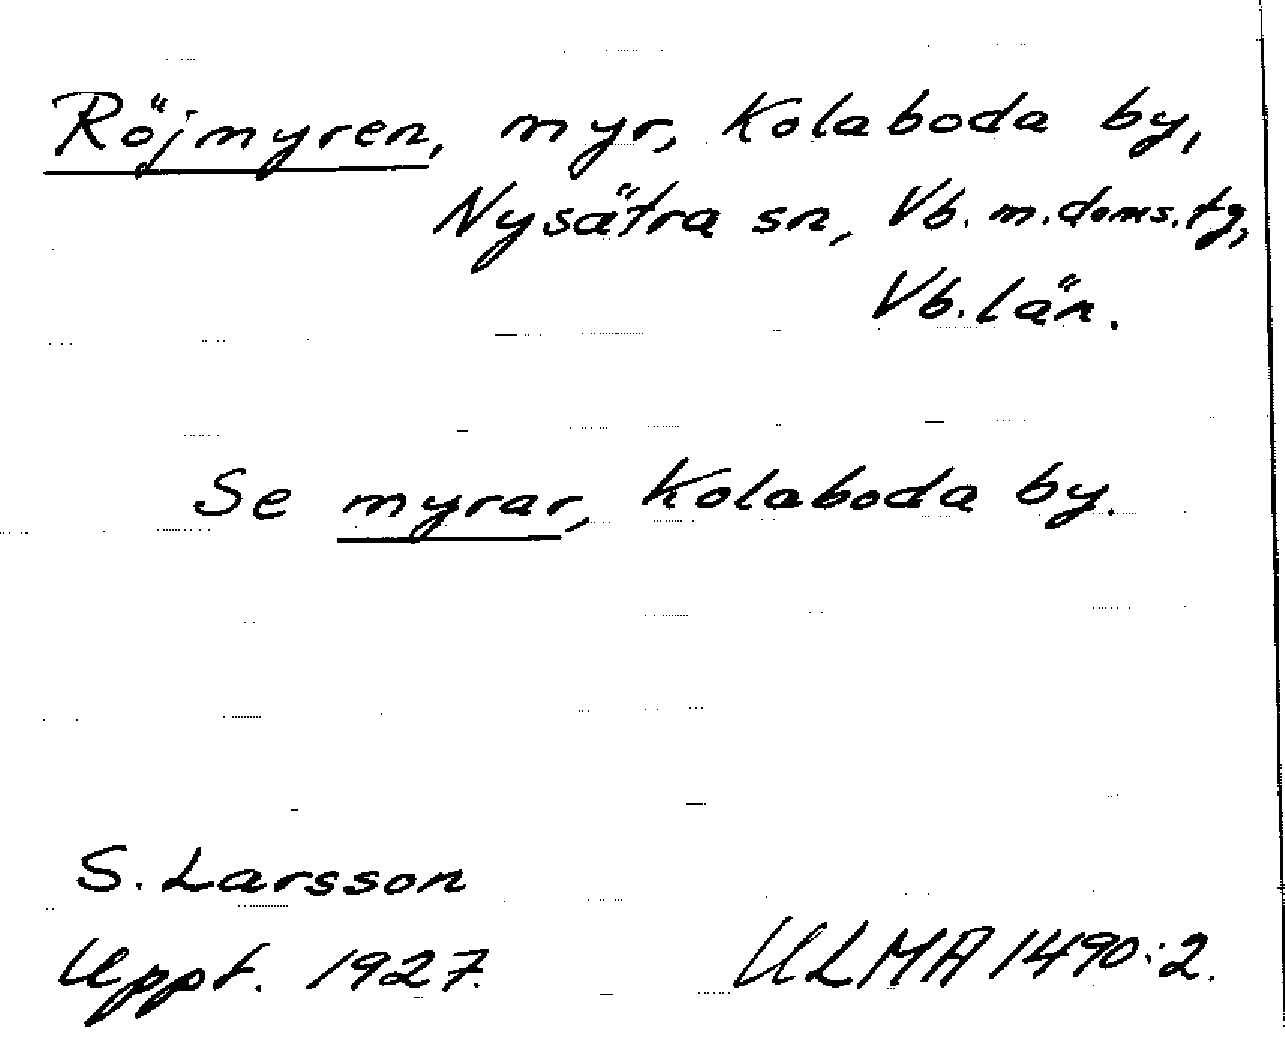 Röjmyren, myr, Kolaboda by,
Nysätra sn, Vb. m. doms. tg,
Vb. län.
Se myrar, Kolaboda by.
S. Larsson
Uppt. 1927.
ULMA 1490:2.